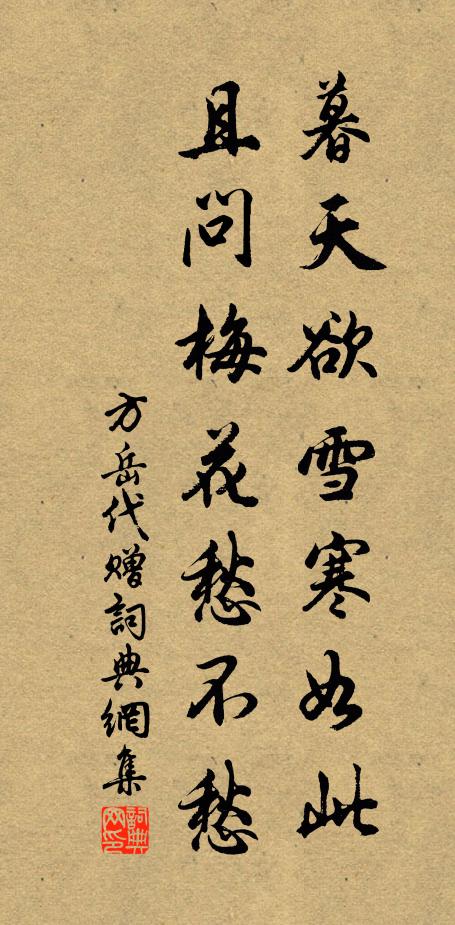 暮天欲雪寒如此
且问梅花愁不愁
方岳代赠詞典網集
詞典网印